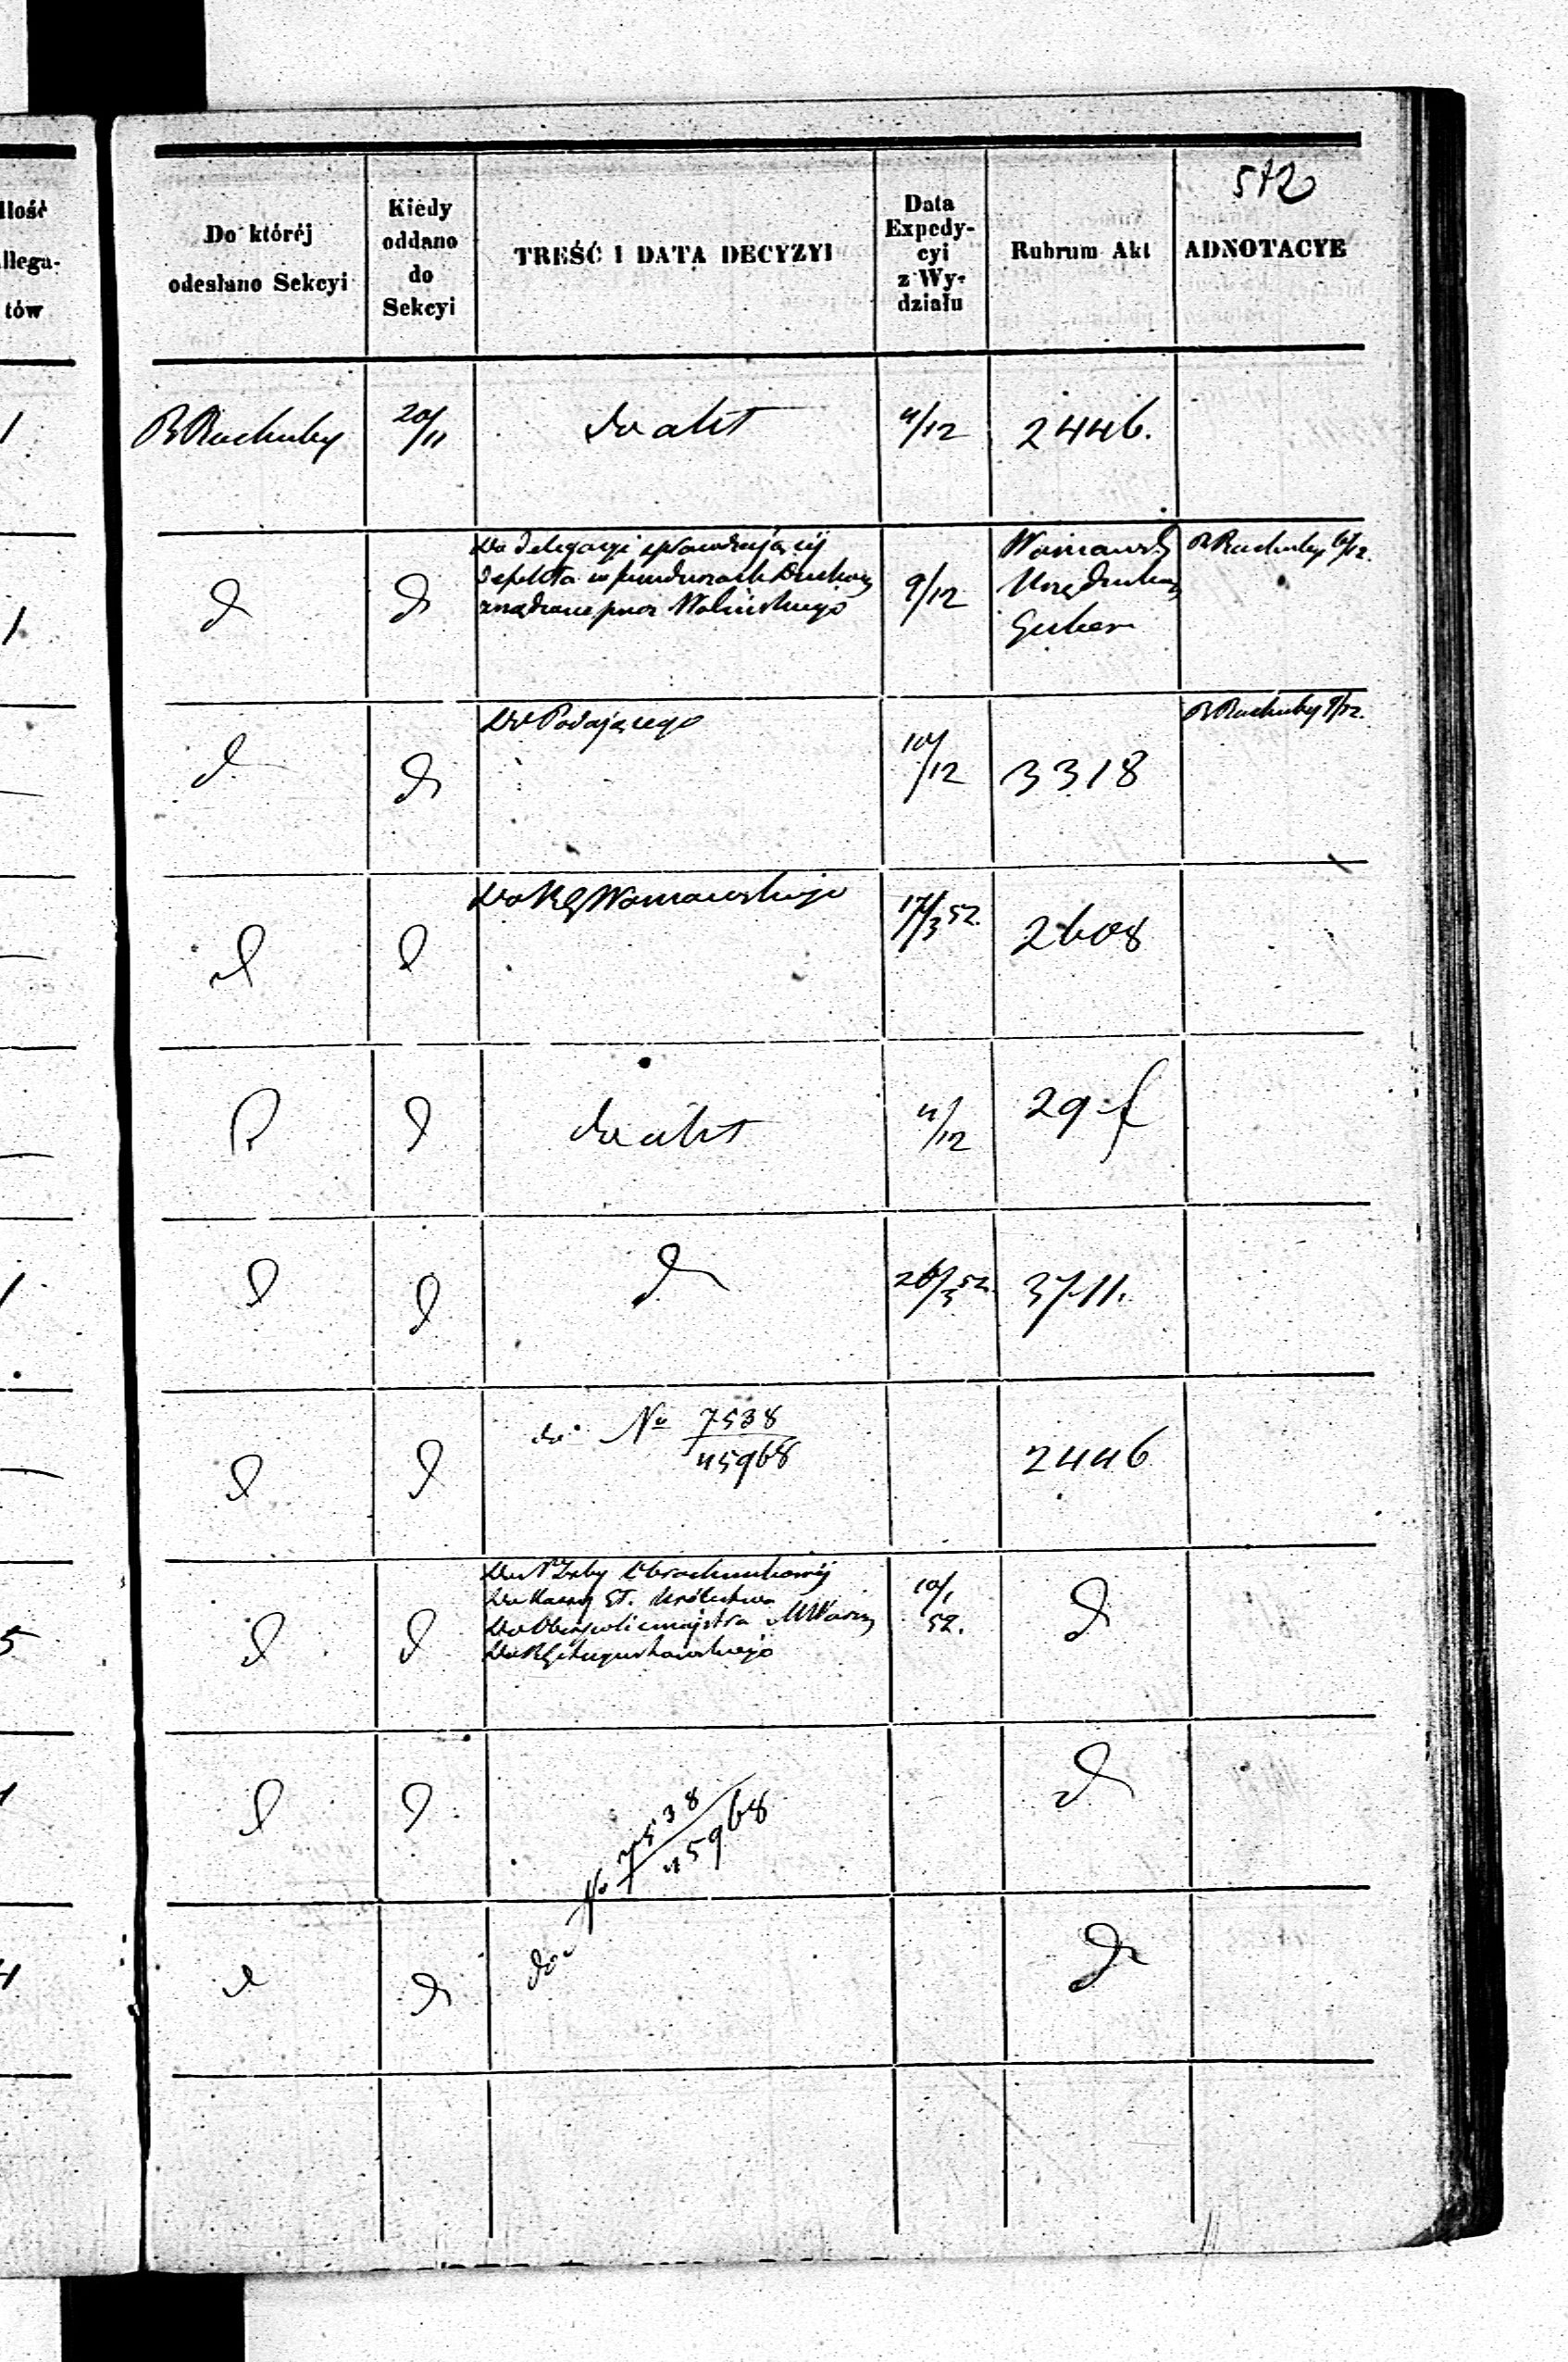 572
Ilość
allega-
tów
Do któréj
odesłano Sekcyi
Kiedy
oddano
do
Sekcyi
TREŚĆ I DATA DECYZYI
Data
Expedy-
cyi
z Wy-
działu
Rubrum Akt
ADNOTACYE
1 B Rachuby 20/11 do akt 4/12 2446.
1 d d
Do Delegacyi sprawdzającej
defekta w funduszach
przez Wolińskiego
9/12
Urzędnicy
Guber
B Rachuby 6/12.
d d Do Podającego 10/12 3318 B Rachuby 9/12.
d d Do RG Warszawskiego 17/3 52. 2608
d d do akt 4/12 29 f
1 d d d 26/3 52. 3711.
d d do No 7538/45968 2446
5 d d
Do N Izby Obrachunkowej
Do Kassy Gł. Królestwa
Do Oberpolicmajstra M Warsz
Do RG Augustowskiego
10/1
52.
d
1 d d do No 7538/45968 d
4 d d d